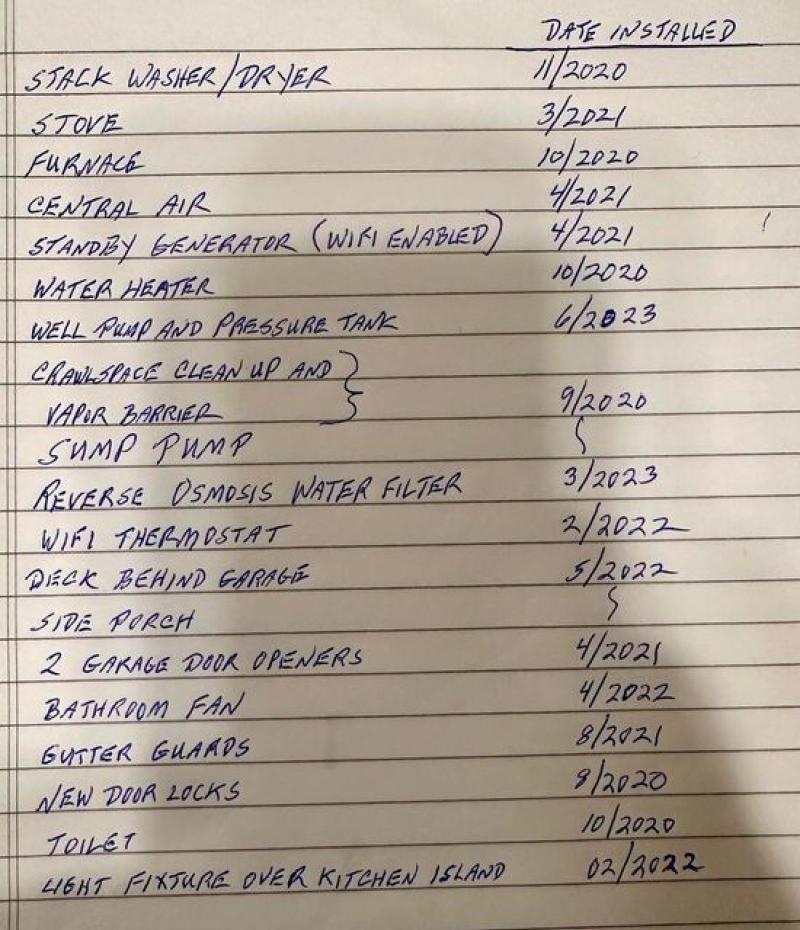 DATE INSTALLED
STACK WASHER/DRYER 11/2020
STOVE 3/2021
FURNACE 10/2020
CENTRAL AIR 4/2021
STANDBY GENERATOR (WIFI ENABLED) 4/2021
WATER HEATER 10/2020
WELL PUMP AND PRESSURE TANK 6/2023
CRAWLSPACE CLEAN UP AND
VAPOR BARRIER 9/2020
SUMP PUMP
REVERSE OSMOSIS WATER FILTER 3/2023
WIFI THERMOSTAT 2/2022
DECK BEHIND GARAGE 5/2022
SIDE PORCH
2 GARAGE DOOR OPENERS 4/2021
BATHROOM FAN 4/2022
GUTTER GUARDS 8/2021
NEW DOOR LOCKS 8/2020
TOILET 10/2020
LIGHT FIXTURE OVER KITCHEN ISLAND 02/2022